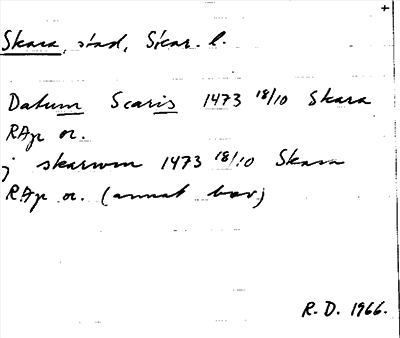 +
Skara, stad, Skar. l.
Datum Scaris 1473 18/10 Skara
RAp or.
j skarwm 1473 18/10 Skara
RAp or. (annat brev)
R. D. 1966.